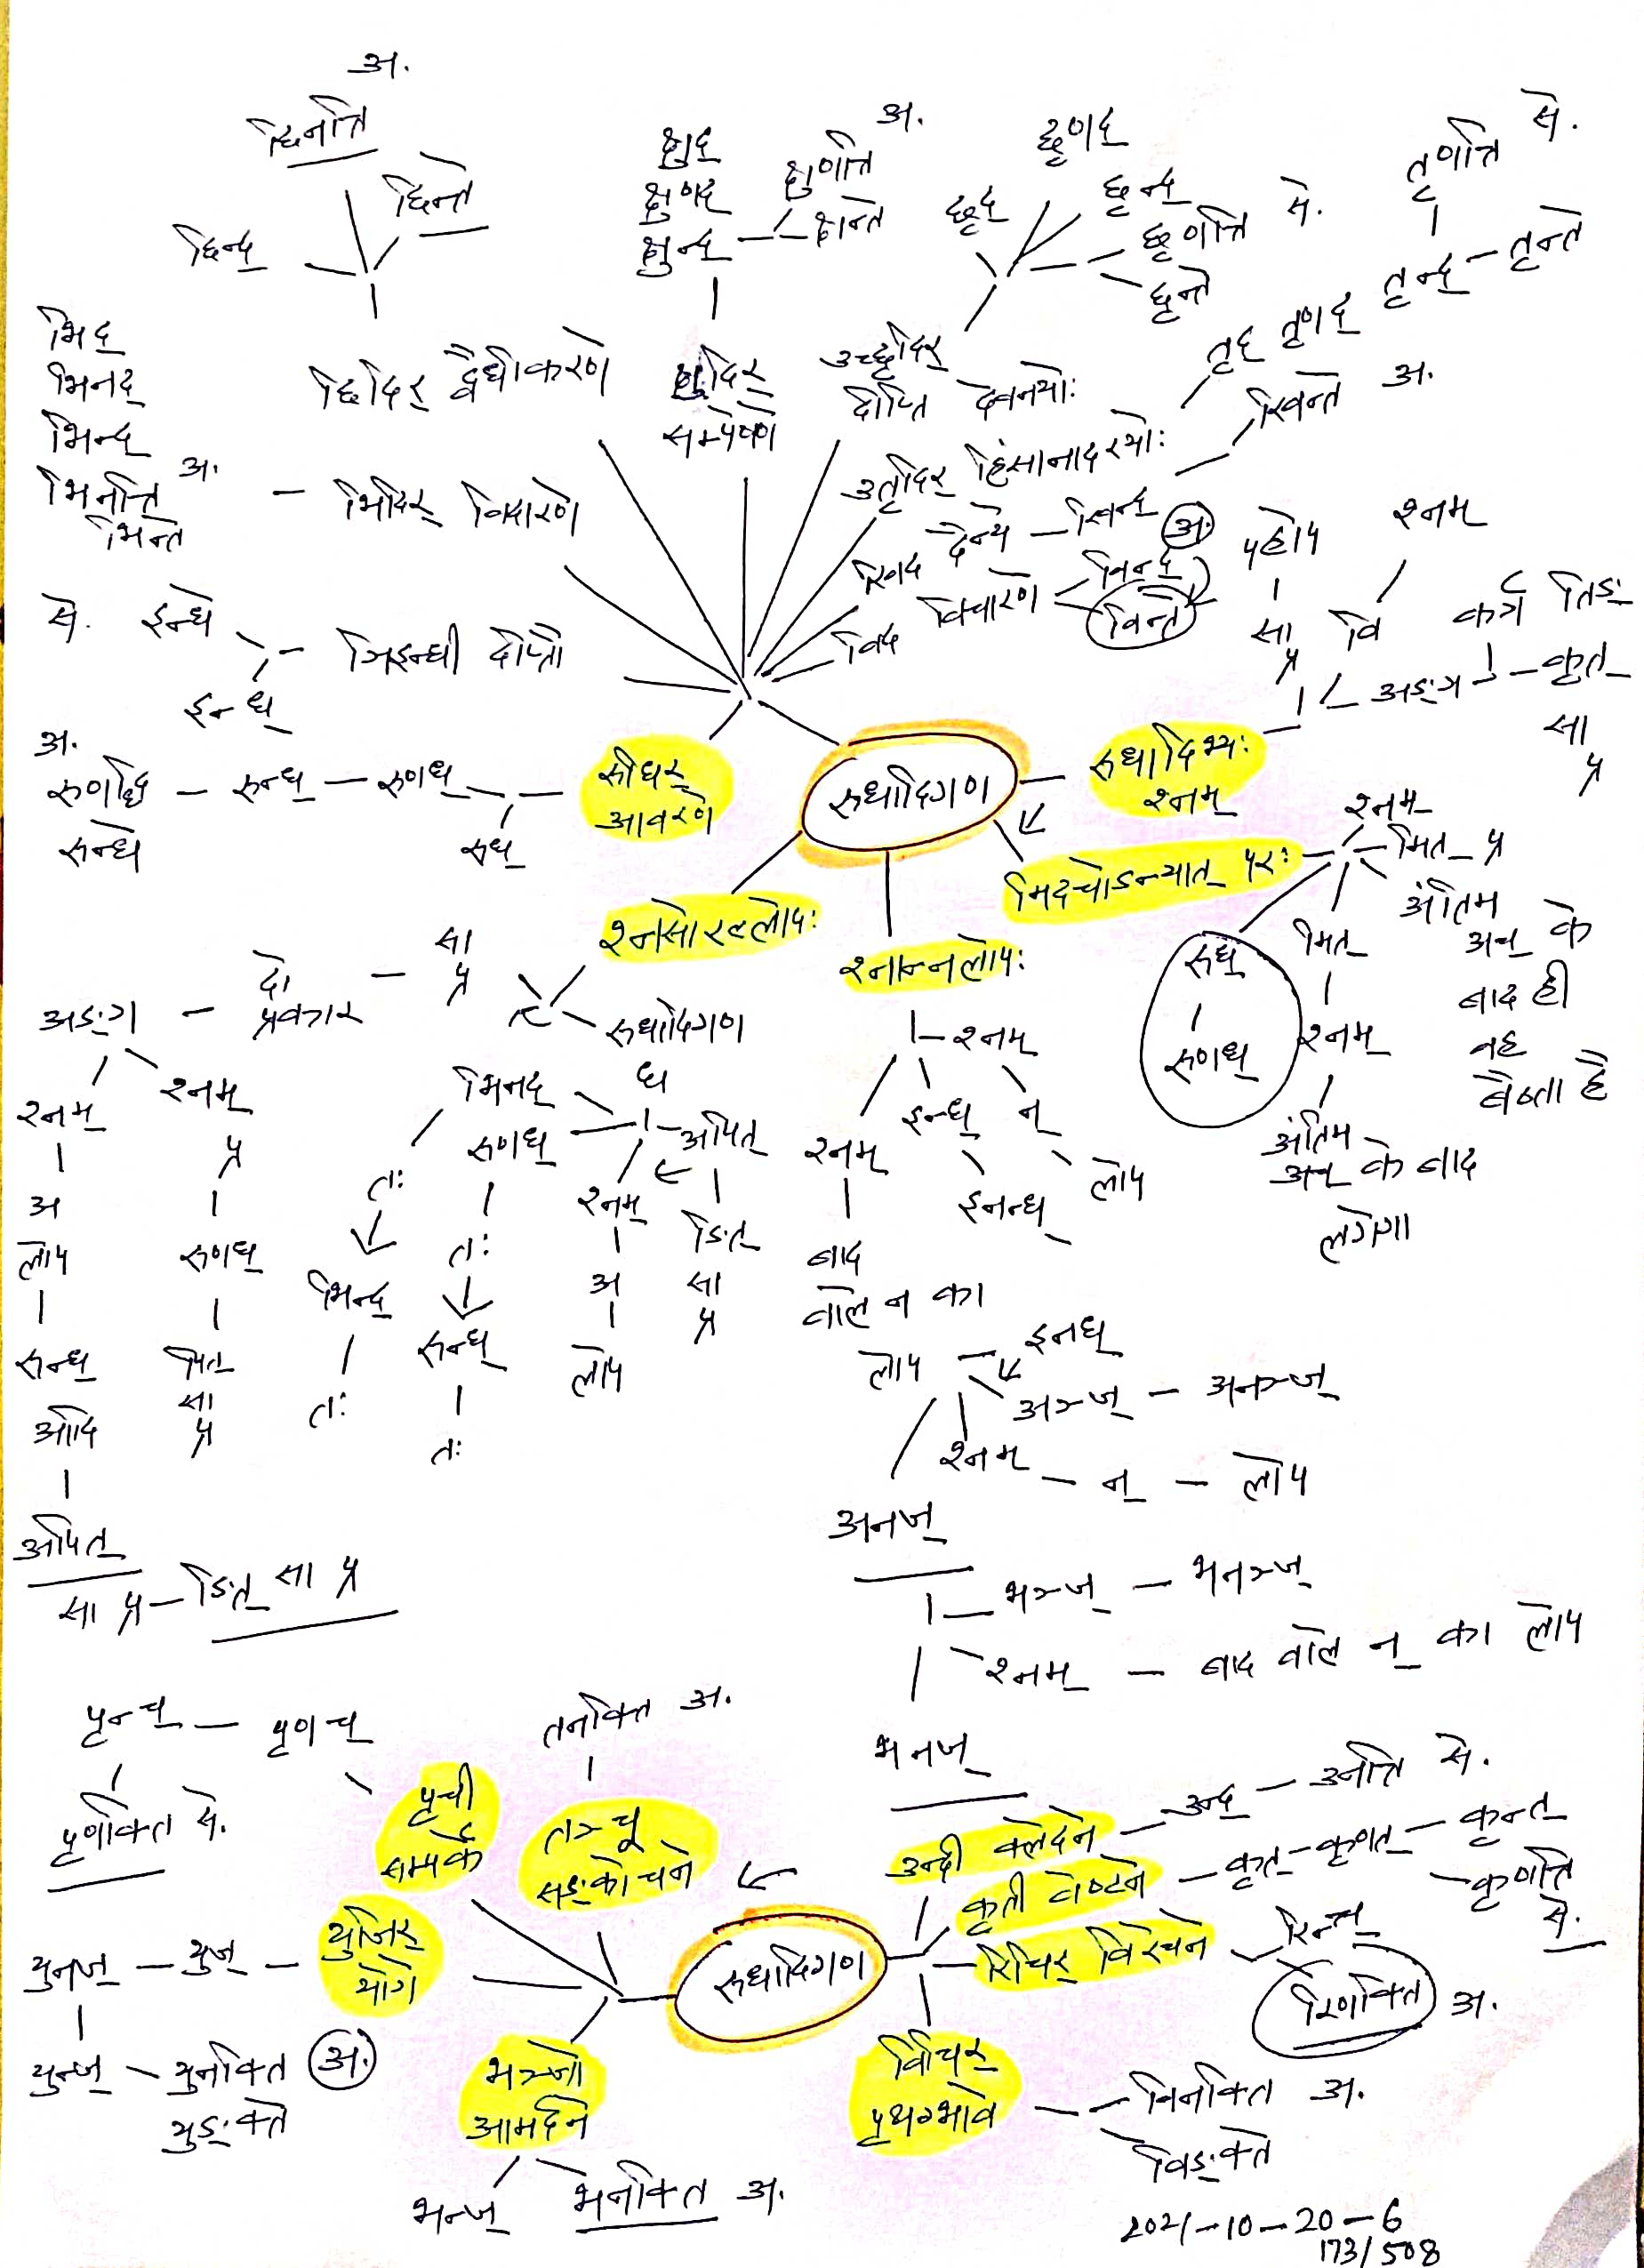 अ.
छिनत्ति
छिन्ते
छिन्द्
छिदिर् द्वैधीकरणे
क्षुद्
क्षुणद्
क्षुन्द्
अ.
क्षुणत्ति
क्षुन्ते
क्षुदिर्
सम्पेषणे
छृणद्
छृद्
छृन्द्
छृणत्ति से.
छृन्ते
उच्छृदिर्
दीप्ति देवनयोः
तृणत्ति से.
तृद् तृणद् तृन्द् - तृन्ते
उतृदिर् हिंसानादरयोः
भिद्
भिनद्
भिन्द्
भिनत्ति अ.
भिन्ते
भिदिर् विदारणे
खिद दैन्ये - खिन्द्
खिन्ते अ.
विद विचारणे
विन्द्
अ.
विन्ते
से. इन्धे
इन्ध्
ञिइन्धी दीप्तौ
अ.
रुणद्धि - रुन्ध् - रुणध्
रुन्धे
रुध्
रुधिर्
आवरणे
रुधादिगण
रुधादिभ्यः
श्नम्
पहले
सा
प्र
श्नम्
वि
अङ्ग
कर्त्र तिङ्
कृत्
सा
प्र
मिदचोऽन्त्यात् परः
श्नम्
मित् प्र
अंतिम
अच् के
बाद ही
वह
बैठता है
मित्
श्नम्
अंतिम
अच् के बाद
लगेगा
रुध्
रुणध्
श्नसोरल्लोपः
रुधादिगण
सा
प्र
दो
प्रकार
अङ्ग
श्नम्
अ
लोप
रुन्ध्
आदि
अपित्
सा प्र - ङित् सा प्र
श्नम्
प्र
रुणध्
पित्
सा
प्र
भिनद्
तः
भिन्द्
तः
रुणध्
तः
रुन्ध्
तः
ध
श्नम्
अ
लोप
अपित्
ङित्
सा
प्र
श्नान्नलोपः
श्नम्
श्नम्
बाद
वाले न का
लोप
इन्ध्
इनन्ध्
न्
लोप
इनध्
अञ्ज् - अनञ्ज्
श्नम् - न् - लोप
अनज्
भञ्ज् - भनञ्ज्
श्नम् - बाद वाले न् का लोप
भनज्
पृन्च् - पृणच्
पृणक्ति से.
पृची
सम्पर्के
तनक्ति अ.
तञ्चू
सङ्कोचने
युनज् - युज् -
युजिर्
योगे
युन्ज् - युनक्ति अ.
युङ्क्ते
भञ्जो
आमर्दने
भन्ज् भनक्ति अ.
रुधादिगण
उन्दी क्लेदने - उन्द् - उनत्ति से.
कृती वेष्टने - कृत् - कृणत् - कृन्त्
कृणत्ति
से.
रिचिर् विरेचने
रिन्च्
रिणक्ति अ.
विचिर्
पृथग्भावे
विनक्ति अ.
विङ्क्ते
2021-10-20-6
173/508